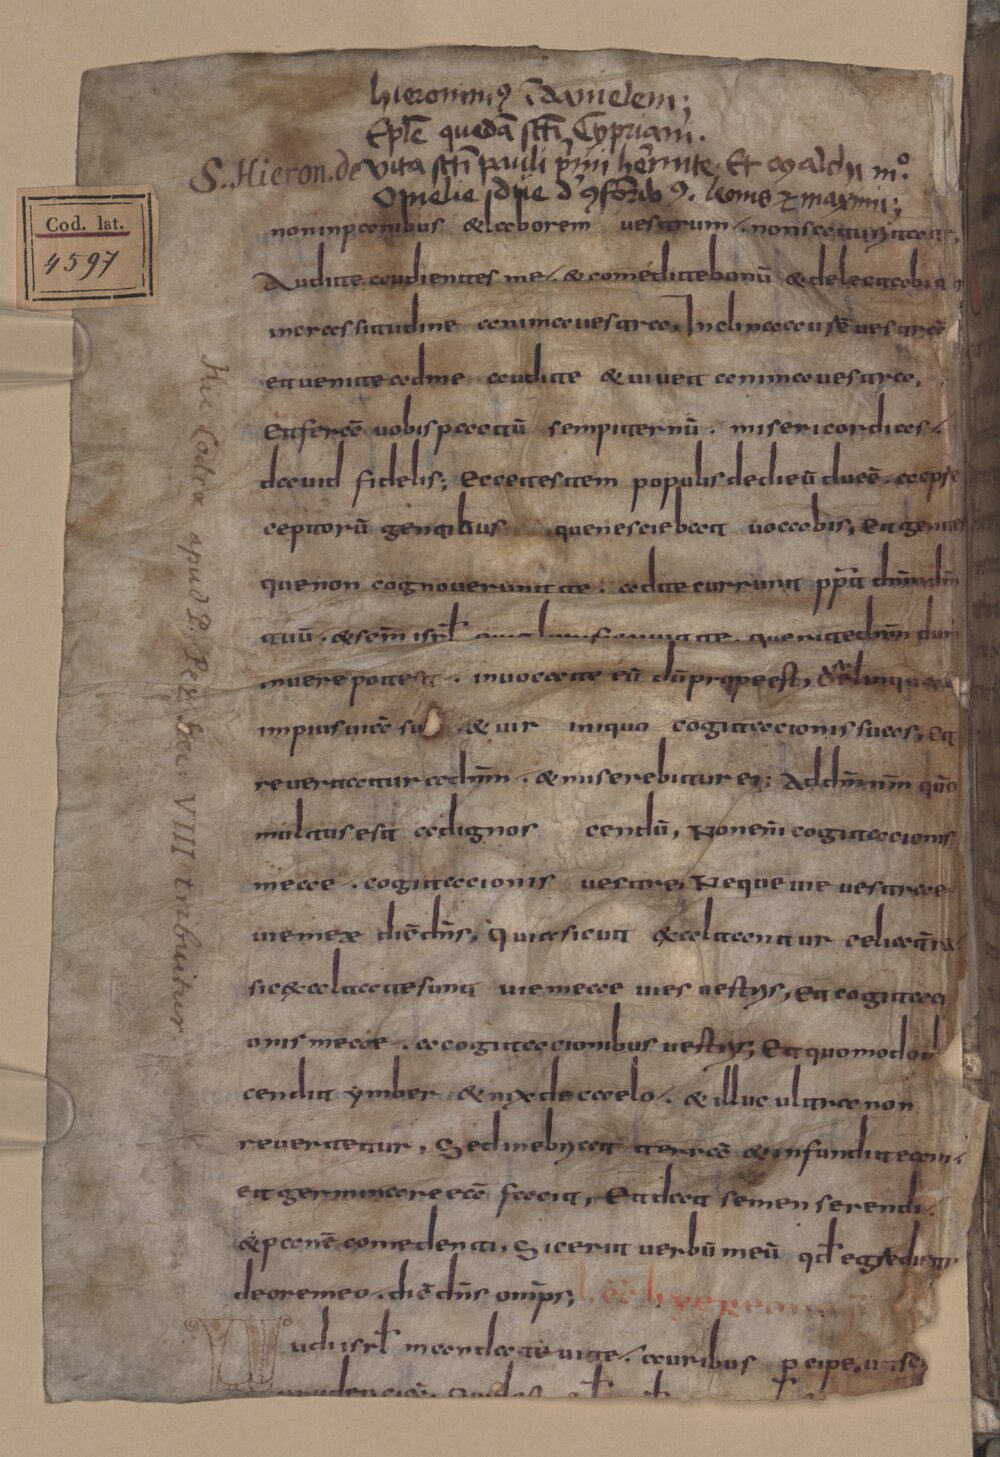 hieronim⁹ ī danielem;
Eplē quedā sct̄i Cypriani.
S. Hieron. de vita sct̄i pauli primi hermite. Et malchi mo.
Omelie
Cod. lat.
4597
non in panibus & laborem vestrum. non saturitate,
Audite audientes me. & comedite bonū & delectabit
in crassitudine anima vestra, Inclinate aurē vestrā
et venite ad me audite & vivet anima vestra,
Et feriā vobis pactū sempiternū. misericordias.
david fidelis; Ecce testem populis dedi eū ducē. ac p
ceptorū gentibus que nesciebat vocabis, Et gentes
que non cognoverunt te. ad te current pp̄t dn̄m dm̄
tuū. & sc̄m isrl̄ querite dn̄m dum
invenire potest. invocate eū dū prope est, Derelinquat
impius viā suā & vir iniquo cogitacionis suas, Et
revertatur ad dn̄m. & miserebitur ei; Ad dn̄m nm̄ qūo
multus est ad ignos cendū, Non en̄i cogitacionis
meae. cogitacionis vestre, Neque vie vestrae
vie mee dic̄ dn̄s, Quia sicut exaltantur celi a t̄ra
sic exaltate sunt vie meae vies vestris, Et cogitaci
onis meae. a cogitacionibus vestris; Et quomodo d
cendit ymber & nix de caelo. & illuc ultra non
revertetur, Sed inebriat terrā & infundit eam.
et germinare eā facit, Et dat semen serendi.
& panē comedenti, Sic erit verbū meū qd̄ egredietur
de ore meo. dic̄ dn̄s omīps;
Audi isrl̄ mandata vite. auribus percipe, ut sci
Hic Codex apud P. Pez Saec. VIII tribuitur.